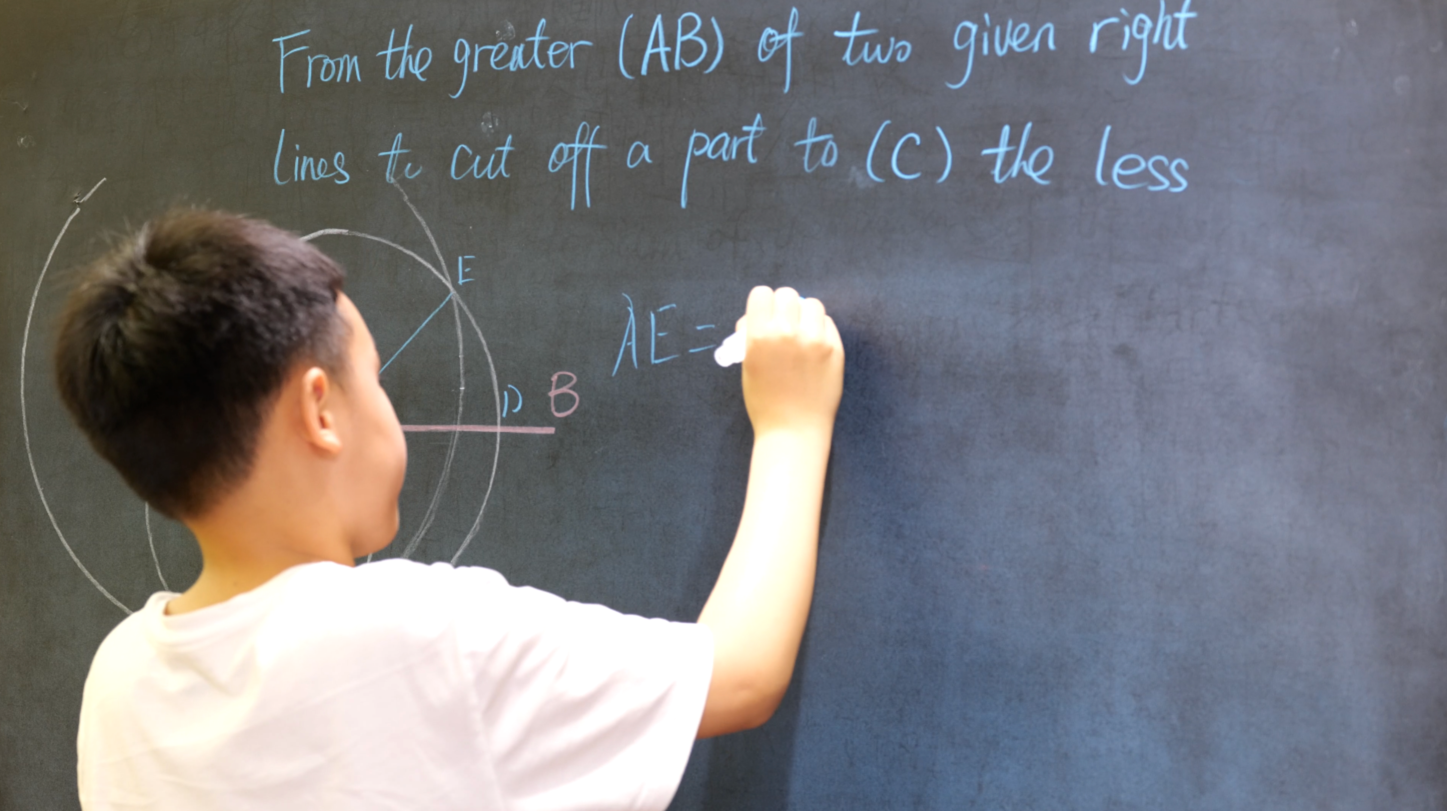 From the greater (AB) of two given right
lines to cut off a part to (C) the less
E
AE=
D B